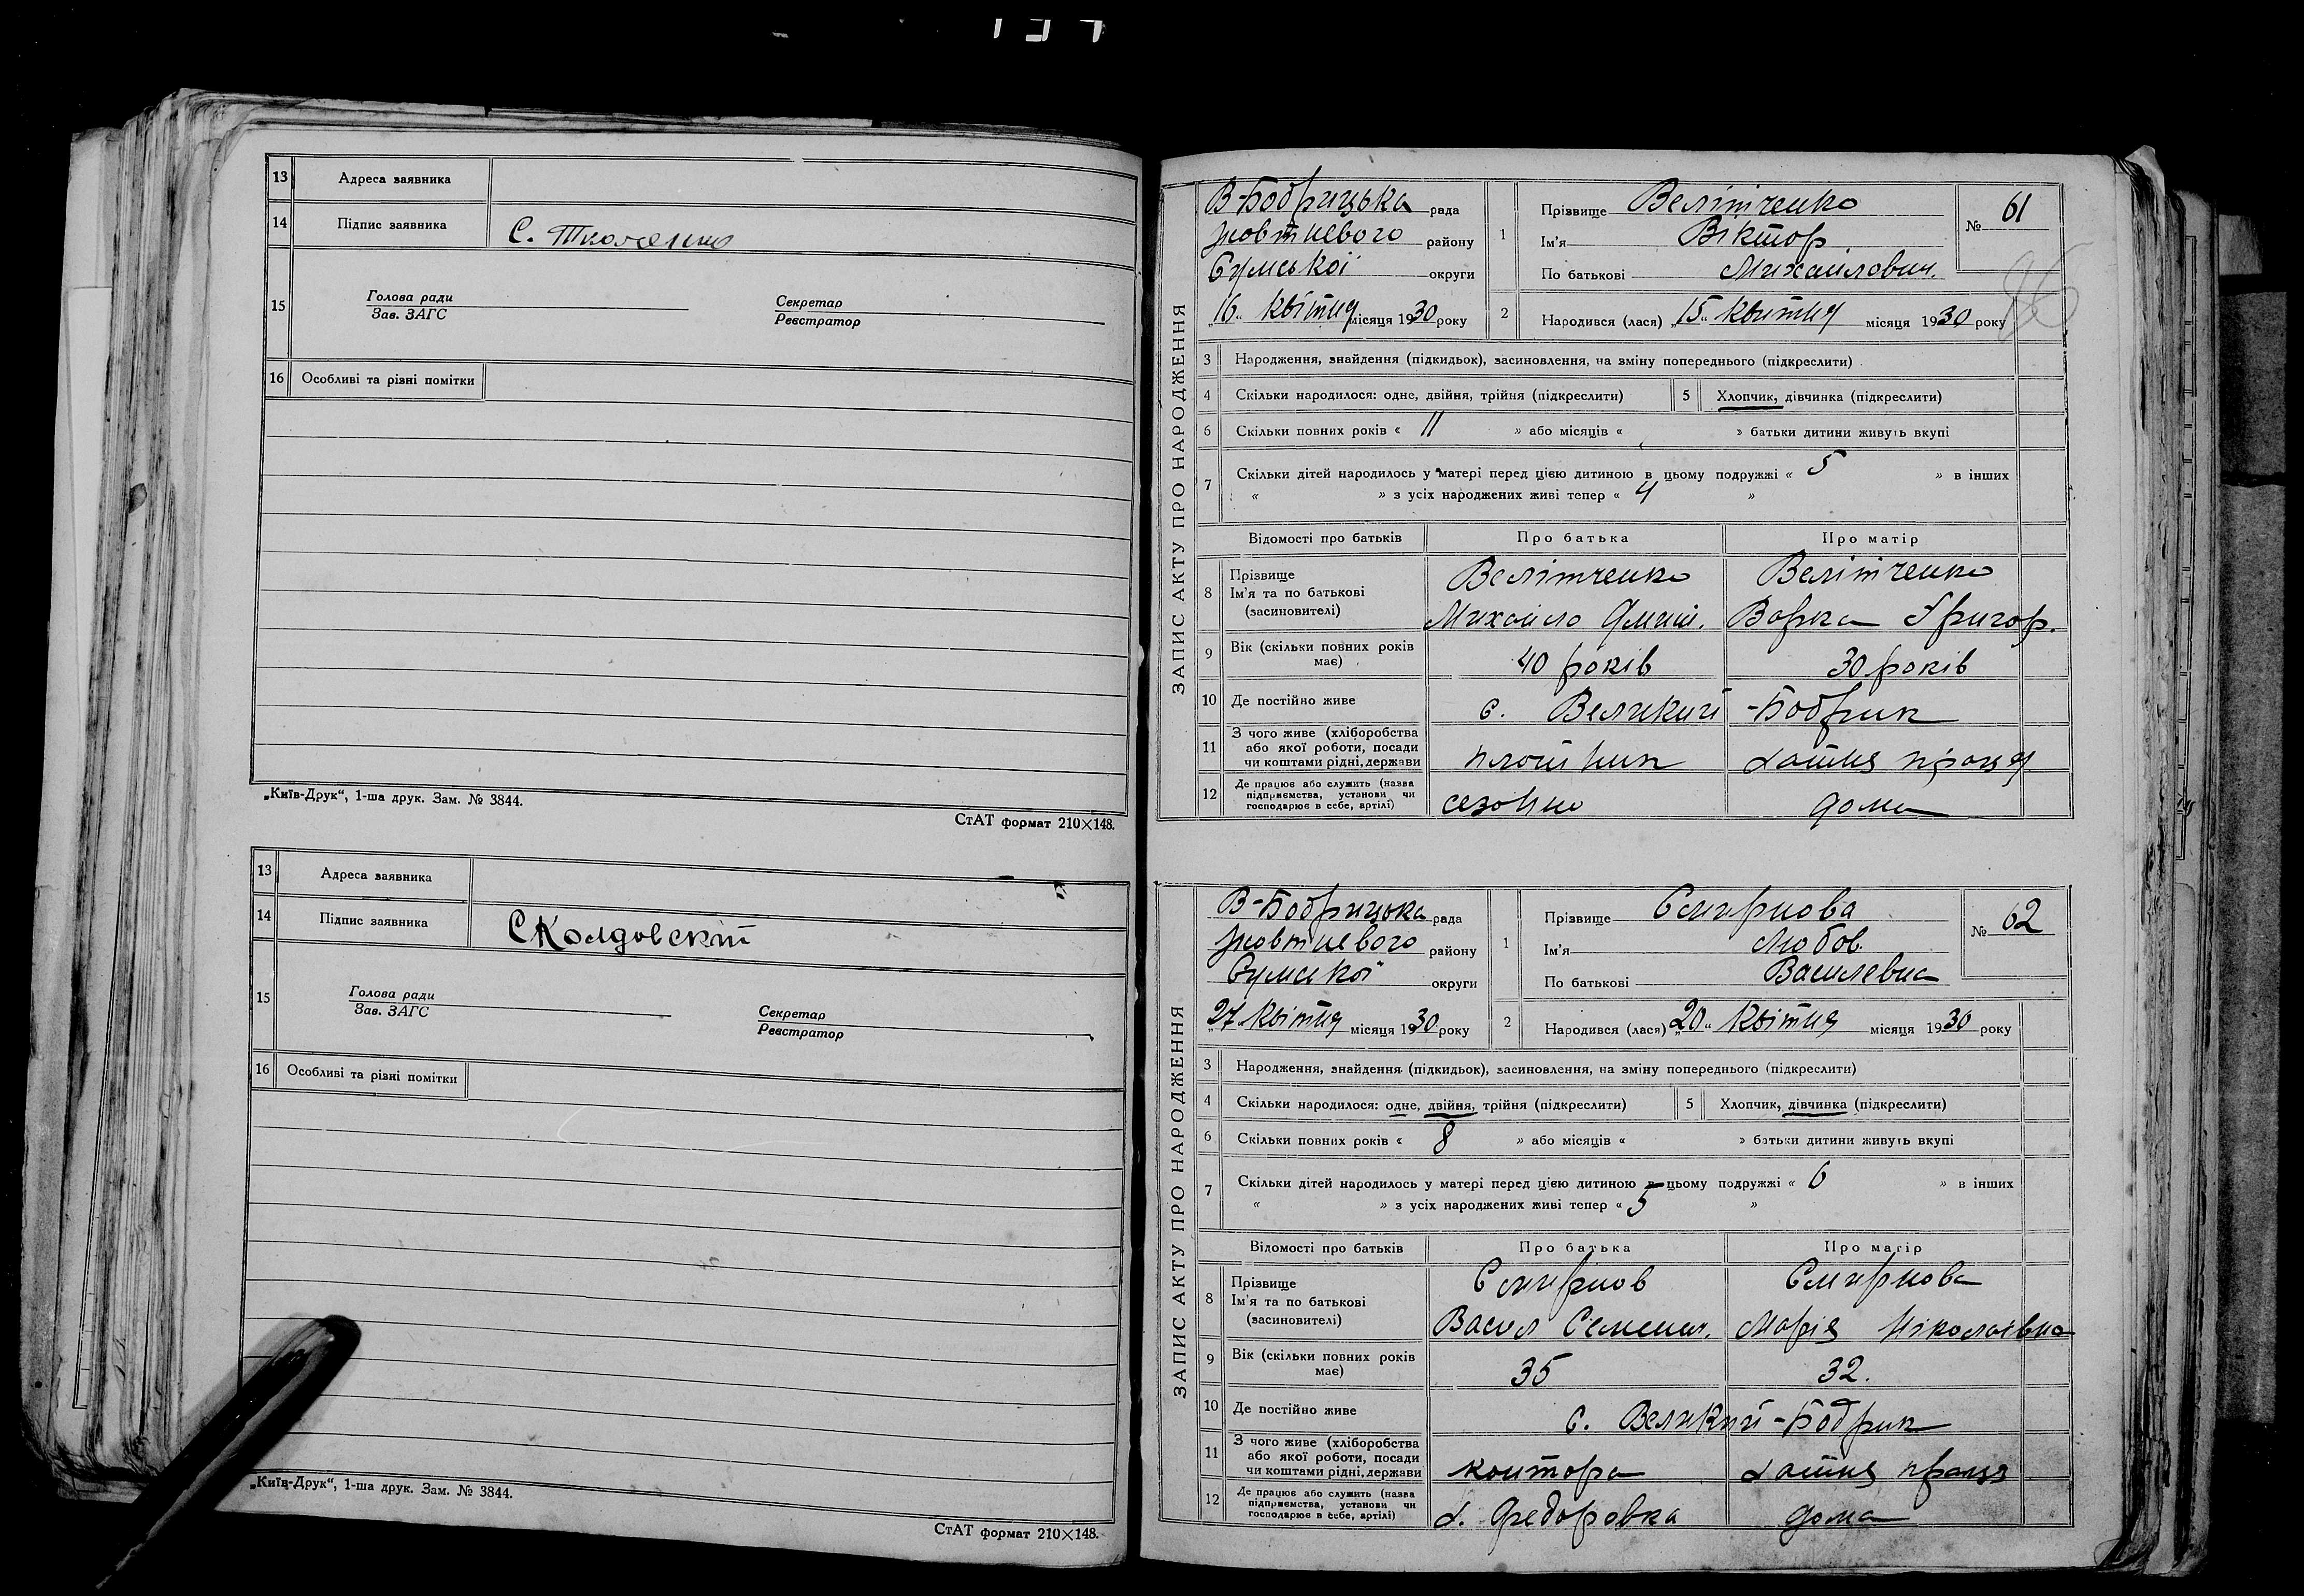 13 Адреса заявника
14 Підпис заявника С. Ткаченко
15 Голова ради Зав. ЗАГС Секретар Реєстратор
16 Особливі та різні помітки
„Київ-Друк“, 1-ша друк. Зам. № 3844.
СтАТ формат 210×148.
13 Адреса заявника
14 Підпис заявника
15 Голова ради Зав. ЗАГС Секретар Реєстратор
16 Особливі та різні помітки
„Київ-Друк“, 1-ша друк. Зам. № 3844.
СтАТ формат 210×148.
ЗАПИС АКТУ ПРО НАРОДЖЕННЯ
В-Бобрицька рада
Жовтневого району
Сумської округи
„16“ Квітня місяця 1930 року
1 Прізвище Велітченко
Ім'я Віктор
По батькові Михайлович.
№ 61
2 Народився (лася) „15“ Квитня місяця 1930 року
3 Народження, знайдення (підкидьок), засиновлення, на зміну попереднього (підкреслити)
4 Скільки народилося: одне, двійня, трійня (підкреслити) 5 Хлопчик, дівчинка (підкреслити)
6 Скільки повних років « 11 » або місяців « » батьки дитини живуть вкупі
7 Скільки дітей народилось у матері перед цією дитиною в цьому подружжі « 5 » в інших
« » з усіх народжених живі тепер « 4 »
Відомості про батьків Про батька Про матір
8 Прізвище Ім'я та по батькові (засиновителі)
Велітченко Велітченко
Михайло Дмит. Варка Григор.
9 Вік (скільки повних років має) 40 років 30 років
10 Де постійно живе с. Великий-Бобрик
11 З чого живе (хліборобства або якої роботи, посади чи коштами рідні, держави плотник хатня праця
12 Де працює або служить (назва підприємства, установи чи господарює в себе, артілі) сезонно дома
ЗАПИС АКТУ ПРО НАРОДЖЕННЯ
В-Бобрицька рада
Жовтневого району
Сумської округи
„27“ Квітня місяця 1930 року
1 Прізвище Смирнова
Ім'я Любов
По батькові Василевна
№ 62
2 Народився (лася) „20“ Квітня місяця 1930 року
3 Народження, знайдення (підкидьок), засиновлення, на зміну попереднього (підкреслити)
4 Скільки народилося: одне, двійня, трійня (підкреслити) 5 Хлопчик, дівчинка (підкреслити)
6 Скільки повних років « 8 » або місяців « » батьки дитини живуть вкупі
7 Скільки дітей народилось у матері перед цією дитиною в цьому подружжі « 6 » в інших
« » з усіх народжених живі тепер « 5 »
Відомості про батьків Про батька Про матір
8 Прізвище Ім'я та по батькові (засиновителі)
Смирнов Смирнова
Васил Семенич. Марія Ніколаівна
9 Вік (скільки повних років має) 35 32.
10 Де постійно живе с. Великий-Бобрик
11 З чого живе (хліборобства або якої роботи, посади чи коштами рідні, держави контора хатня праця
12 Де працює або служить (назва підприємства, установи чи господарює в себе, артілі) х. Федоровка дома